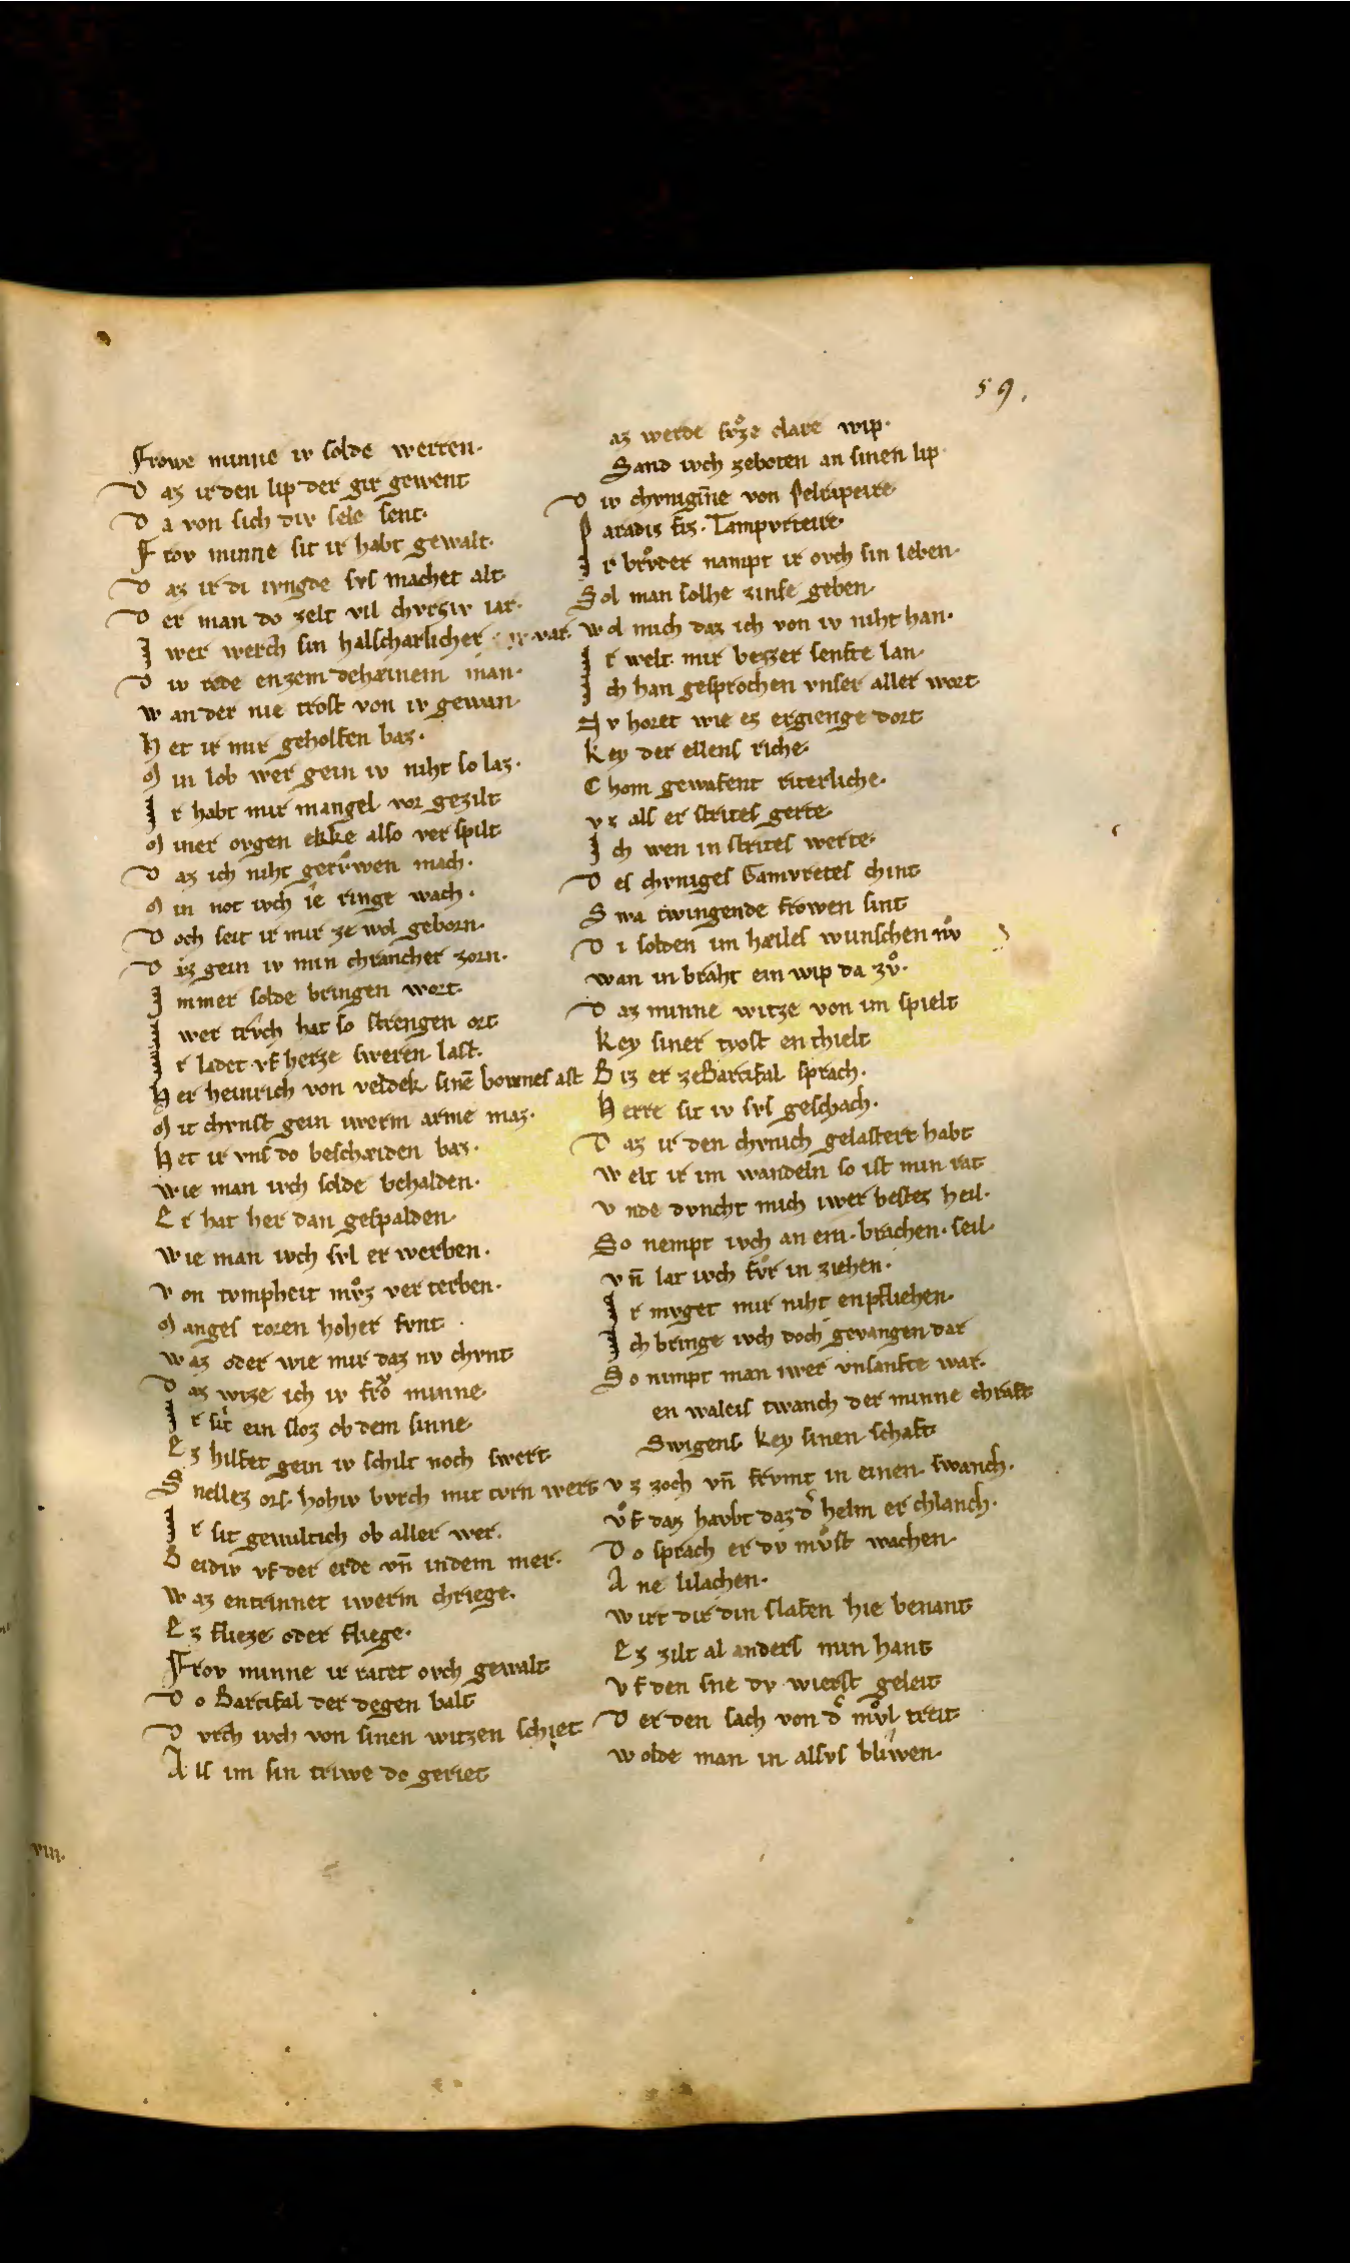 59.
Frowe minne iv solde werren.
D az ir den lip der gir gewent
D a von sich div sele sent.
F rov minne sit ir habt gewalt.
D az ir di ivngde svs machet alt.
D er man do zelt vil chvrziv iar.
I wer werch sin halscharlicher var.
D iv rede enzem dehæinem man.
W an der nie trost von iv gewan.
H et ir mir geholfen baz.
M in lob wer gein iv niht so laz.
I r habt mir mangel vor gezilt
M iner ovgen ekke also verspilt
D az ich niht getrvͦwen mach.
M in not ivch ie ringe wach.
D och seit ir mir ze wol geborn.
D az gein iv min chrancher zorn.
I mmer solde bringen wort.
I wer trvͦch hat so strengen ort
I r ladet vf herze sweren last.
H er heinrich von veldek sinē bovmes ast
M it chvnst gein iwerm arme maz.
H et ir vns do beschæiden baz.
Wie man ivch solde behalden.
E r hat her dan gespalden.
Wie man ivch svl er werben.
V on tvmpheit mvͦz ver terben.
M anges toren hoher fvnt.
Waz oder wie mir daz nv chvnt
D az wize ich iv froͮ minne.
I r sit ein sloz ob dem sinne.
E z hilfet gein iv schilt noch swert.
S nellez ors. hohiv bvrch mit tvrn wert
I r sit gewaltich ob aller wer.
B eidiv vf der erde vn̄ indem mer.
W az entrinnet iwerm chriege.
E z flieze oder fliege.
Frov minne ir tatet ovch gewalt
D o Barcifal der degen balt
D vrch ivch von sinen witzen schiet
A ls im sin triwe do geriet
az werde svͦze clare wip.
Sand ivch zeboten an sinen lip
D iv chvnigīne von Pelripeire
P aradis fiz. Tampvnteire
I r brvͦder nampt ir ovch sin leben.
S ol man solhe zinse geben.
Wol mich daz ich von iv niht han.
I r welt mir bezzer senfte lan.
I ch han gesprochen vnser aller wort
N v horet wie ez ergienge dort
Key der ellens riche.
C hom gewafent riterliche.
vz als er strites gerte.
I ch wen in strites werte.
D es chvniges Gamvretes chint
S wa twingende frowen sint
D i solden im hæiles wunschen nvͦ
wan in braht ein wip da zvͦ.
D az minne witze von im spielt
Key siner tyost en thielt
B iz er ze Barcifal sprach.
Herre sit iv svs geschach.
D az ir den chvnich gelastert habt
Welt ir im wandeln so ist min rat
V nde dvncht mich iwer bestez heil.
S o nempt ivch an ein. brachen. seil.
vn̄ lat ivch fvͤr in ziehen.
I r mvget mir niht enpfliehen.
I ch bringe ivch doch gevangen dar
S o nimpt man iwer vnsanfte war.
en waleis twanch der minne chraft
Swigens. key sinen schaft
V z zoch vn̄ frvmt in einen swanch.
vͦf daz havbt daz d̾ helm er chlanch.
D o sprach er dv mvͦst wachen.
A ne lilachen.
wirt dir din slafen hie benant
E z zilt al anders min hant
V f den sne dv wierst geleit
D er den sach von d̾ mvͦl treit
wolde man in alsvs bliwen.
viii.